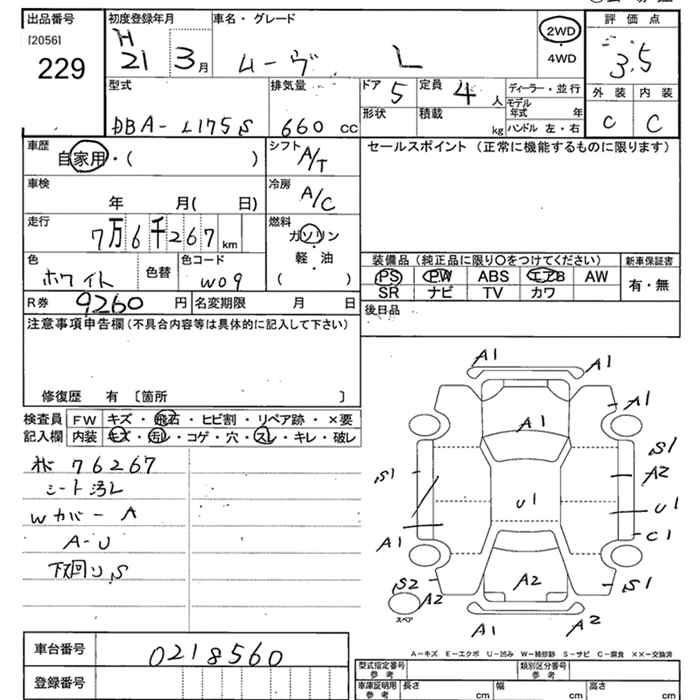 出品番号
[2056]
229
初度登録年月
H
21 3月
車名・グレード
ムーヴ L
2WD
・
4WD
評価点
3.5
外装 内装
C C
型式
DBA-L175S
排気量
660 cc
ドア 5
形状
定員 4 人
積載 kg
ディーラー・並行
モデル年式 年
ハンドル 左・右
車歴
自家用・( )
シフト A/T
車検
年 月( 日)
冷房 A/C
走行
7万6千267km
燃料
ガソリン
・
軽・油
( )
色
ホワイト
色替
色コード
W09
R券 9260円
名変期限 月 日
セールスポイント(正常に機能するものに限ります)
装備品(純正品に限り○をつけてください)
新車保証書
PS PW ABS エアB AW
SR ナビ TV カワ
有・無
後日品
注意事項申告欄(不具合内容等は具体的に記入して下さい)
修復歴 有 〔箇所 〕
検査員記入欄
FW キズ・飛石・ヒビ割・リペア跡・×要
内装 キズ・汚レ・コゲ・穴・スレ・キレ・破レ
76267
シート汚レ
Wカバー A
A-U
下回りS
A1 A1
A1
A1
S1
S1
A2
U1
U1
C1
A1
S2
A2
A2
S1
スペア
A1
A2
A-キズ E-エクボ U-凹み W-補修跡 S-サビ C-腐食 ××-交換済
車台番号 0218560
登録番号
型式指定番号 参考
類別区分番号 参考
車庫証明用 参考 長さ cm 幅 cm 高さ cm